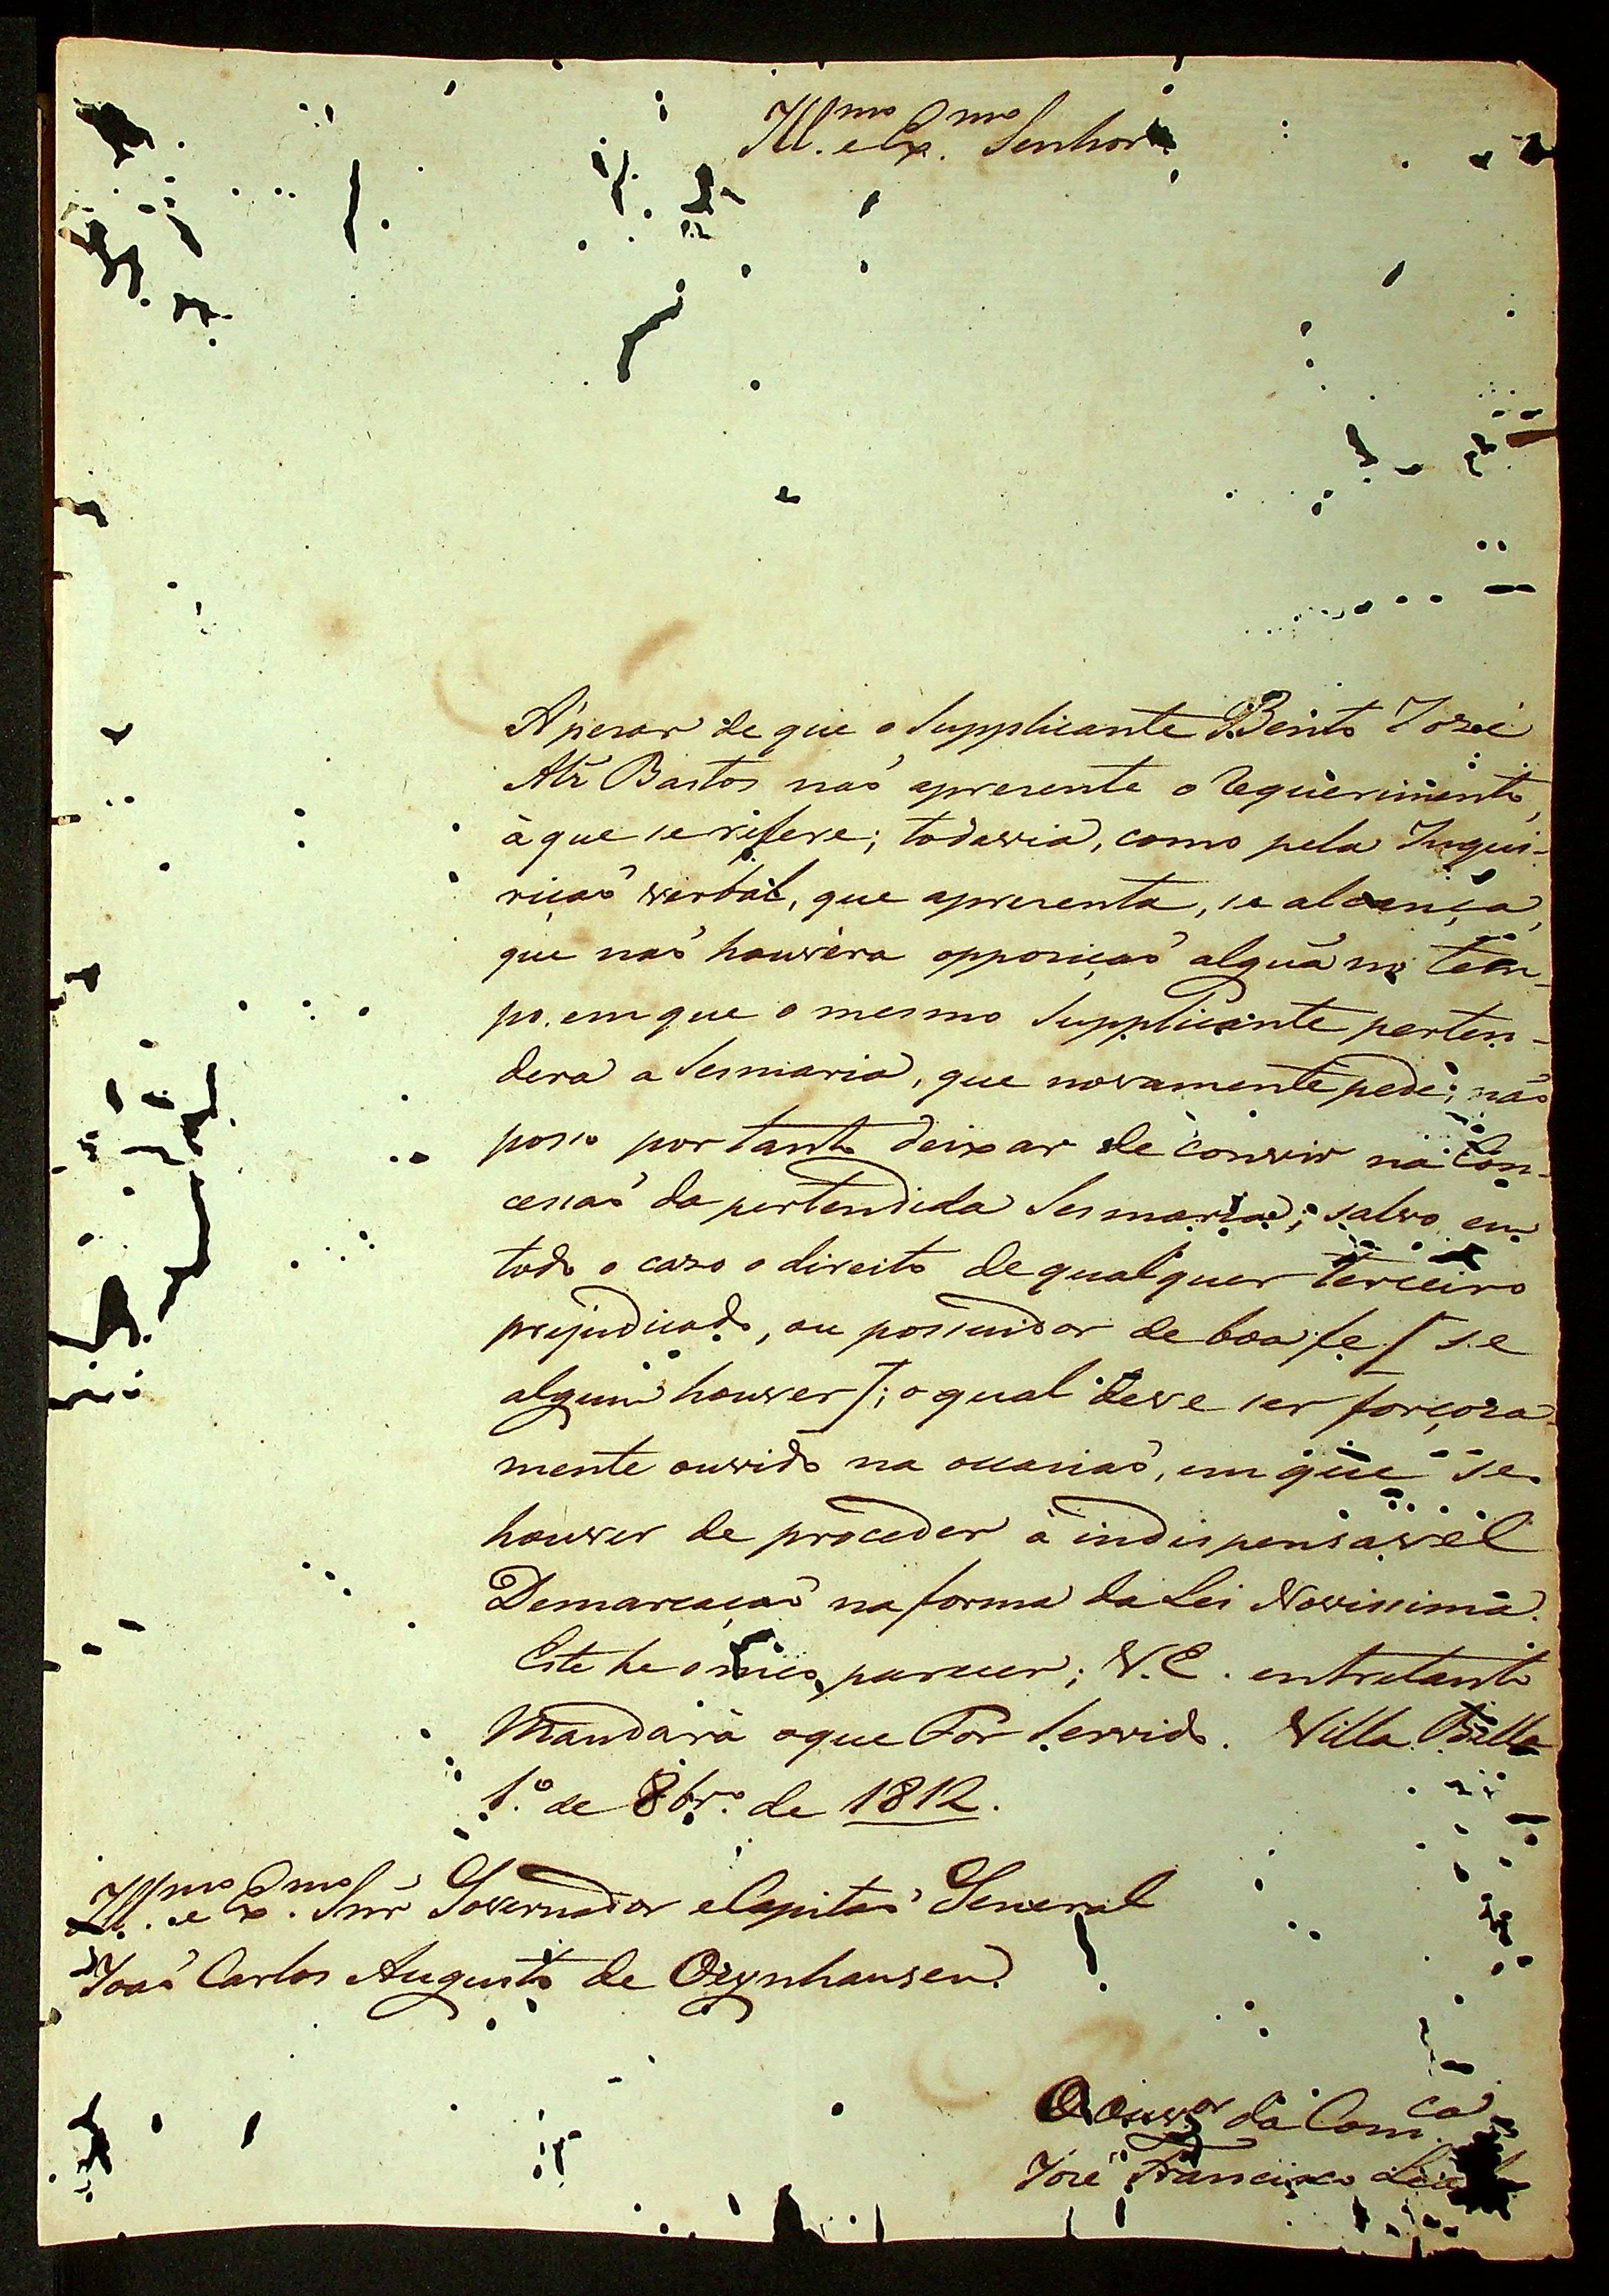 Ill.mo e Ex.mo Senhor
A'pesar de que o Supplicante Bento José
Bastos naõ apresente o Requerimento,
à que se refere; todavia, como pela Inqui-
riçaõ verbal, que apresenta, se alcança,
que naõ houvera opposiçaõ alguã no tem-
po, em que o mesmo Supplicante perten-
dera a Sesmaria, que novamente pede; naõ
posso por tanto deixar de convir na Con-
cessaõ da pertendida Sesmaria; salvo em
todo o cazo o direito de qualquer terceiro
prejudicado, ou possuidor de boa fe [ se
algum houver ]; o qual deve ser forçoza-
mente ouvido na occasiaõ, em que se
houver de proceder à indispensavel
Demarcaçaõ na forma da Lei Novissima.
Este he o meu parecer; V.E. entretanto
Mandarà o que For Servido. Villa Bella
1.º de 8br.º de 1812.
Ill.mo e Ex.mo Snr Governador e Capitaõ General
Joaõ Carlos Augusto de Oeynhausen.
O Ouv.or da Com.ca
José Francisco Leal